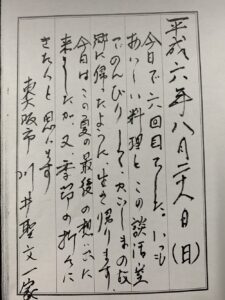 平成六年八月二十八日(日)
今日で六回目でした。いつも
おいしい料理とこの談話室
でのんびりして、
郷に帰ったように生き帰ります。
今日はこの夏の最後の想い出に
来ましたが又、季節の折々に
きたいと思います
東大阪市 川井聖文一家